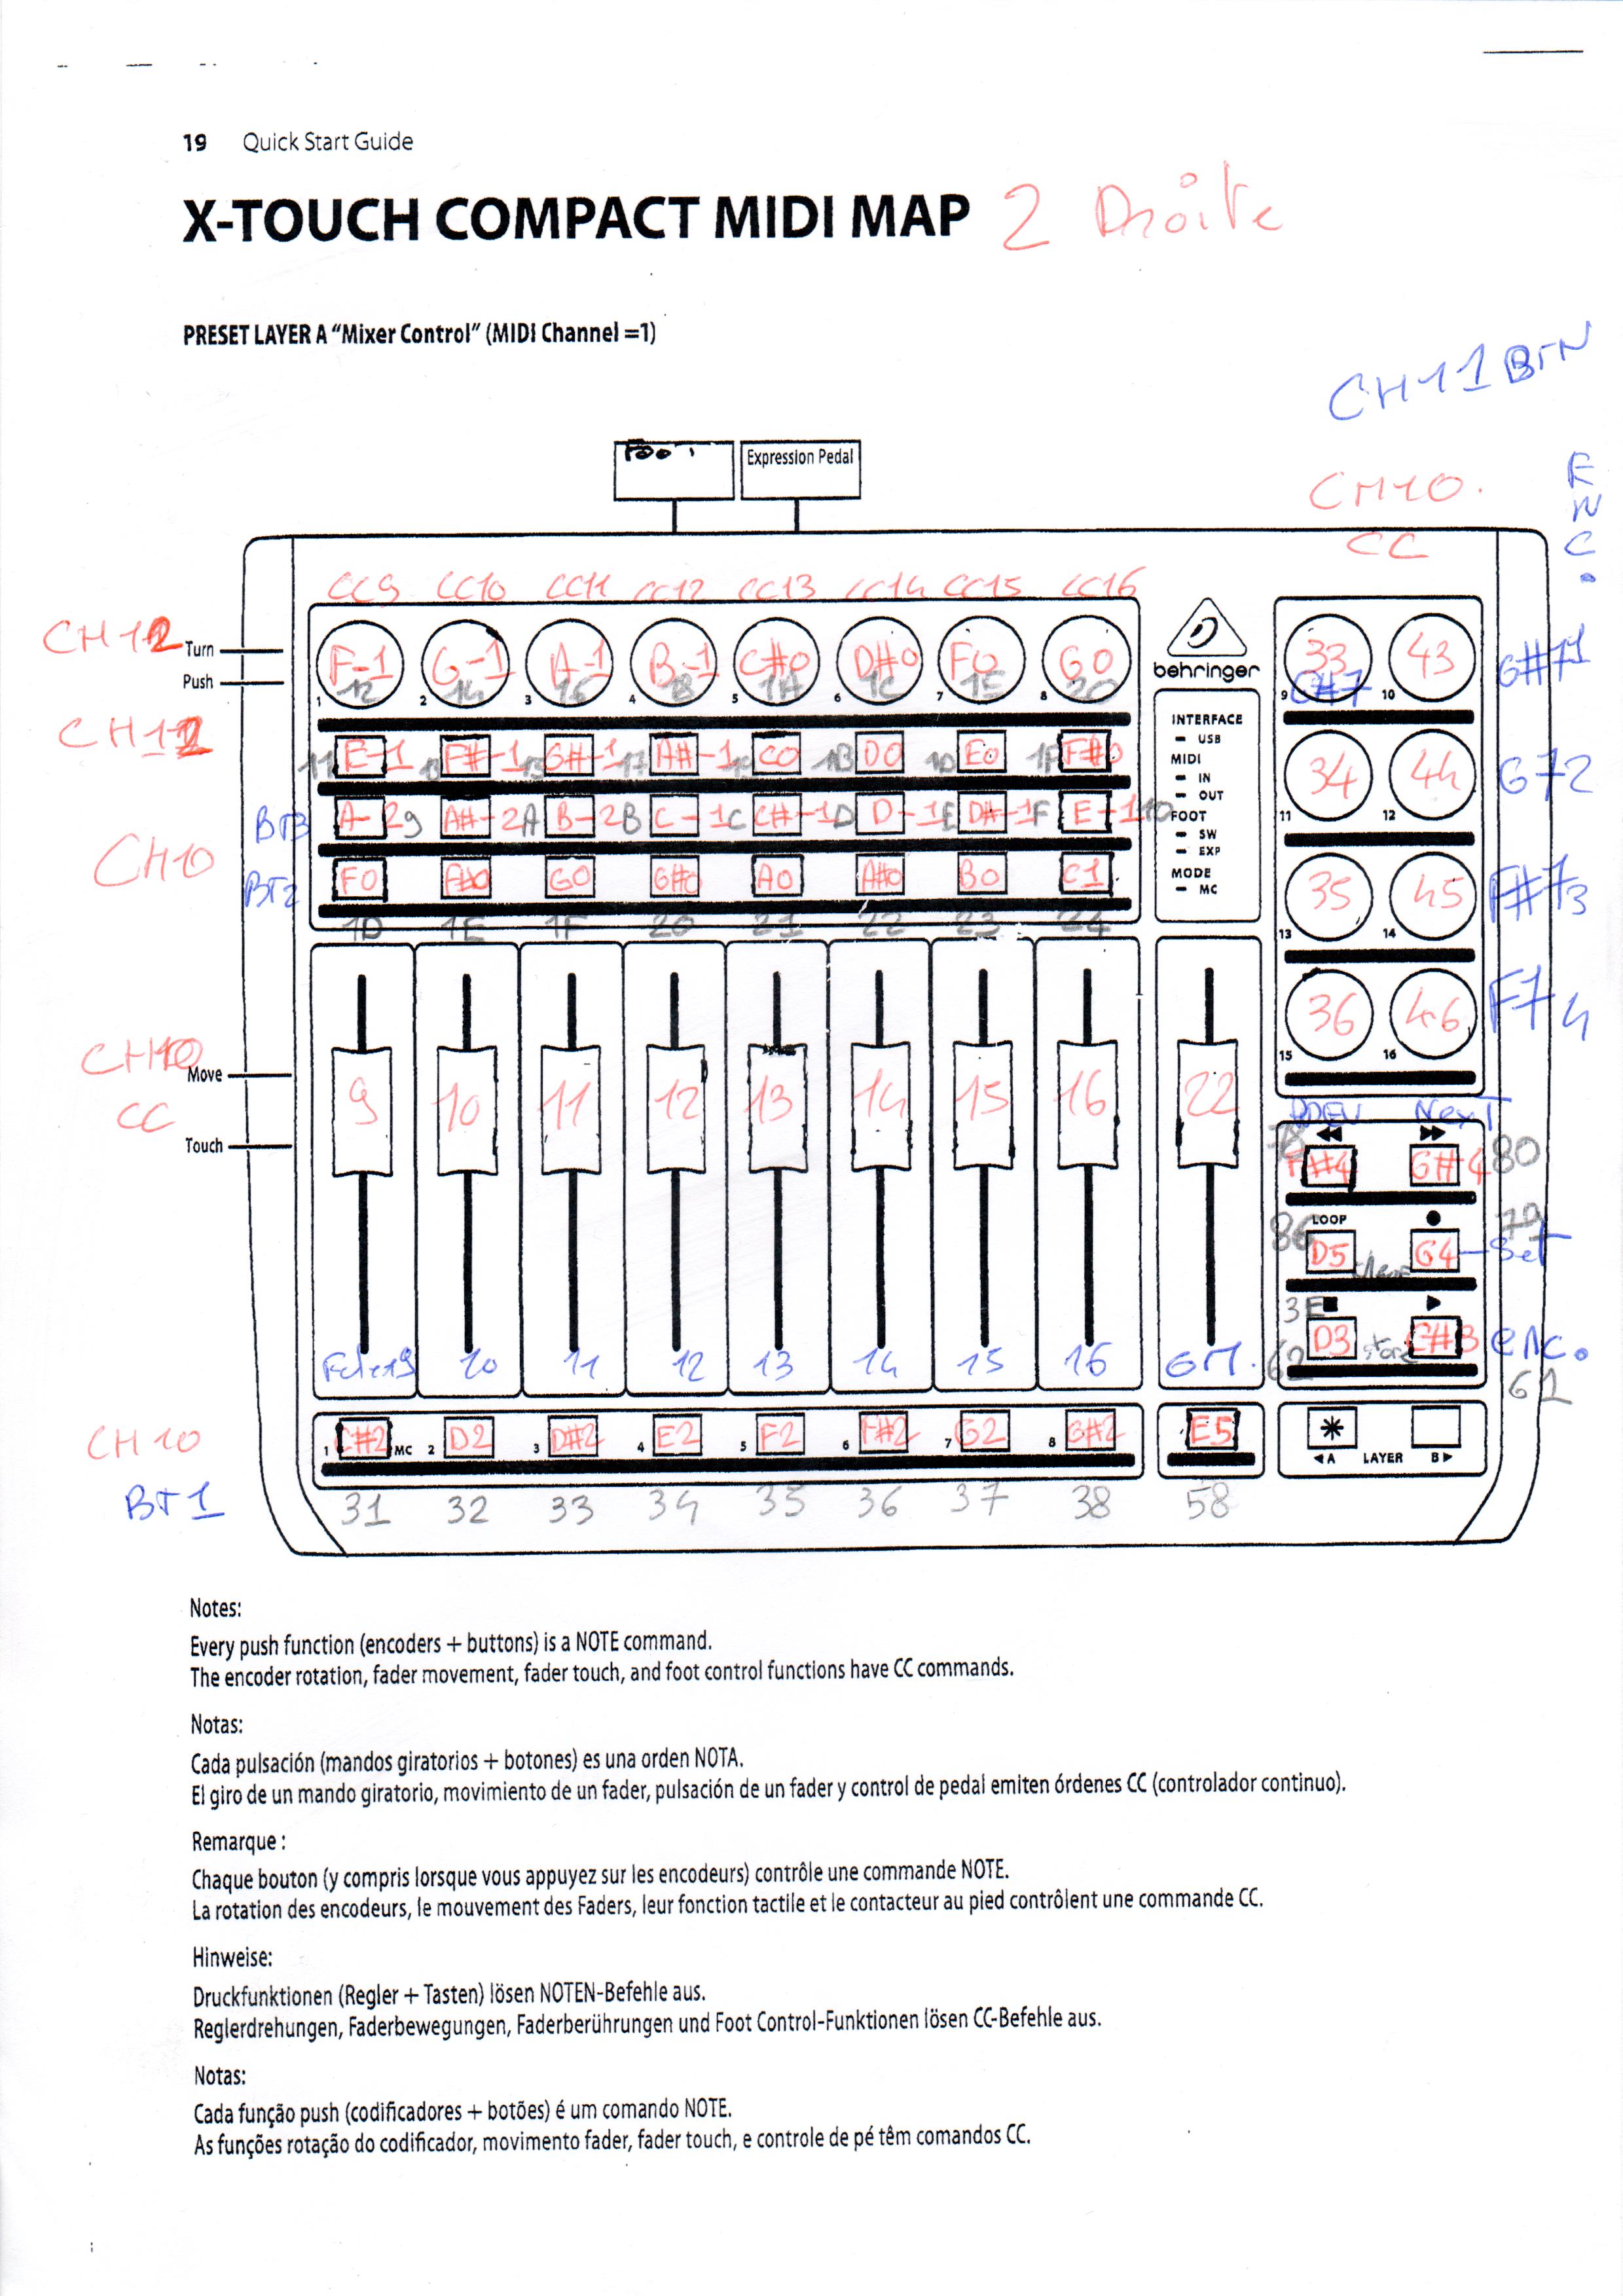 19 Quick Start Guide
X-TOUCH COMPACT MIDI MAP 2 Droite
PRESET LAYER A “Mixer Control” (MIDI Channel =1)
CH11 BTN
FOOT Expression Pedal
CH10.
CC
ENC.
CC9 CC10 CC11 CC12 CC13 CC14 CC15 CC16
CH12 Turn
Push
F-1 G-1 A-1 B-1 C#0 D#0 F0 G0 behringer 33 43 G#71
12 14 16 18 1A 1C 1E 20
1 2 3 4 5 6 7 8 9 C#7 10
CH12
11 E-1 13 F#-1 15 G#-1 17 A#-1 19 C0 1B D0 1D E0 1F F#0
INTERFACE
USB
MIDI
IN
OUT
34 44 G72
BT3 A-2 9 A#-2 A B-2 B C-1 C C#-1 D D-1 E D#-1 F E-1 10
FOOT
SW
EXP
11 12
CH10
BT2 F0 F#0 G0 G#0 A0 A#0 B0 C1
MODE
MC
35 45 F#73
1D 1E 1F 20 21 22 23 24
13 14
36 46 F74
15 16
CH10
Move
CC
9 10 11 12 13 14 15 16 22
Touch
PREV NexT
78 F#4 G#4 80
LOOP 79
86 D5 G4 Set
3E
62 D3 store C#3 enc.
61
Fader9 10 11 12 13 14 15 16 GM.
CH10
1 C#2 MC 2 D2 3 D#2 4 E2 5 F2 6 F#2 7 G2 8 G#2 E5
A LAYER B
BT1 31 32 33 34 35 36 37 38 58
Notes:
Every push function (encoders + buttons) is a NOTE command.
The encoder rotation, fader movement, fader touch, and foot control functions have CC commands.
Notas:
Cada pulsación (mandos giratorios + botones) es una orden NOTA.
El giro de un mando giratorio, movimiento de un fader, pulsación de un fader y control de pedal emiten órdenes CC (controlador continuo).
Remarque :
Chaque bouton (y compris lorsque vous appuyez sur les encodeurs) contrôle une commande NOTE.
La rotation des encodeurs, le mouvement des Faders, leur fonction tactile et le contacteur au pied contrôlent une commande CC.
Hinweise:
Druckfunktionen (Regler + Tasten) lösen NOTEN-Befehle aus.
Reglerdrehungen, Faderbewegungen, Faderberührungen und Foot Control-Funktionen lösen CC-Befehle aus.
Notas:
Cada função push (codificadores + botões) é um comando NOTE.
As funções rotação do codificador, movimento fader, fader touch, e controle de pé têm comandos CC.